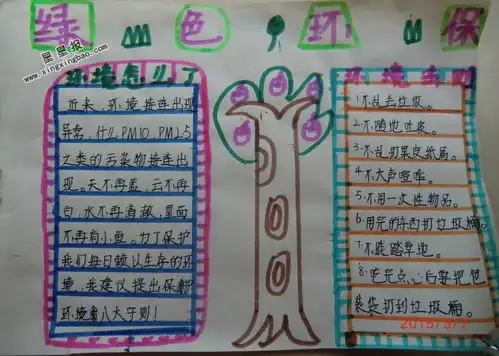 绿色环保
星星报
www.xingxingbao.cn
环境怎么了
近来,环境接连出现
异常,什么PM10、PM2.5
之类的污染物接连出
现。天不再蓝,云不再
白,水不再清澈,里面
不再有小鱼。为了保护
我们每日赖以生存的环
境,我建议提出保
环境八大守则!
环境守则
1.不乱丢垃圾。
2.不随地吐痰。
3.不乱扔果皮纸屑。
4.不大声喧哗。
5.不用一次性物品。
6.用完的东西扔垃圾桶。
7.不践踏草地。
8.吃完点心后要把包
装袋扔到垃圾桶。
2015/3/7